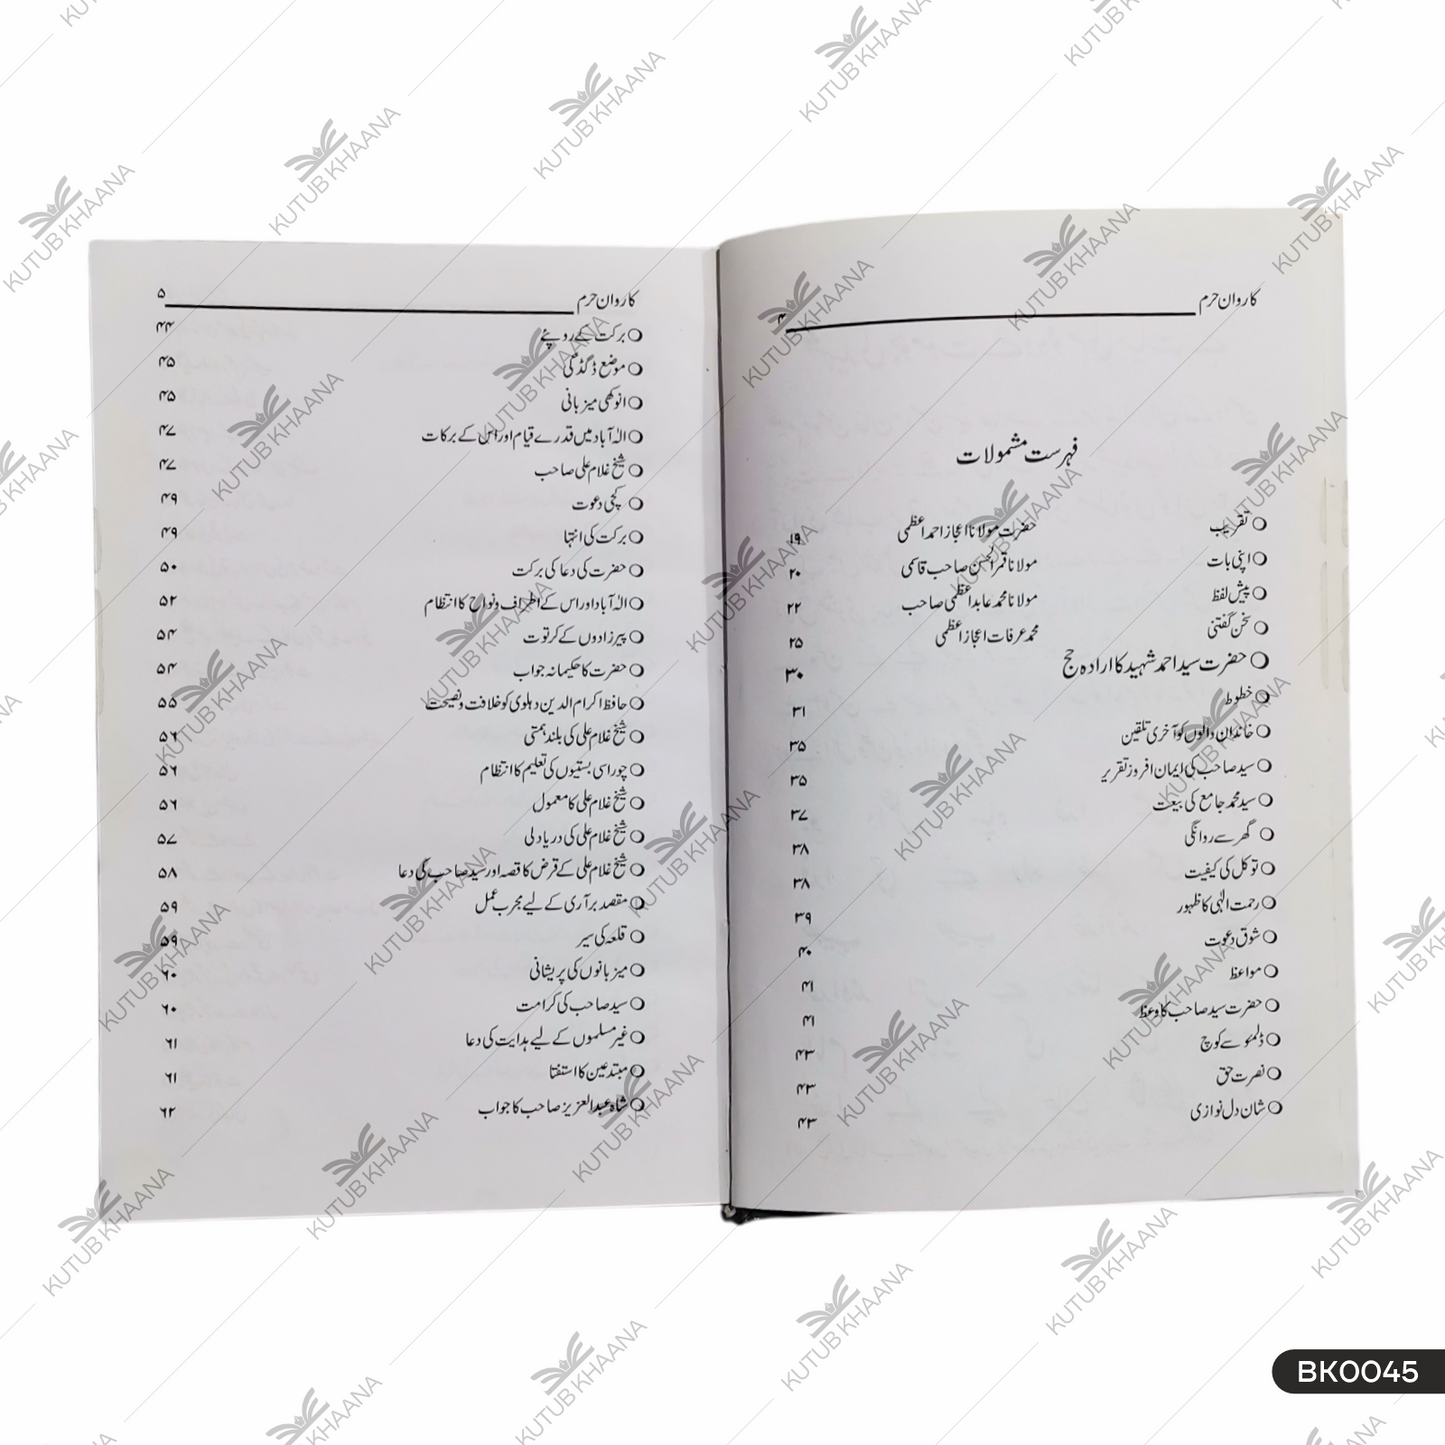 کاروان حرم
۴
فہرست مشمولات
تقریب حضرت مولانا اعجاز احمد اعظمی ۱۹
اپنی بات مولانا قمر الحسن صاحب قاسمی ۲۰
پیش لفظ مولانا محمد عابد اعظمی صاحب ۲۲
سخن گفتنی محمد عرفات اعجاز اعظمی ۲۵
حضرت سید احمد شہید کا ارادہ حج ۳۰
خطوط ۳۱
خاندان والوں کو آخری تلقین ۳۵
سید صاحب کی ایمان افروز تقریر ۳۵
سید محمد جامع کی بیعت ۳۷
گھر سے روانگی ۳۸
توکل کی کیفیت ۳۸
رحمت الٰہی کا ظہور ۳۹
شوق دعوت ۴۰
مواعظ ۴۱
حضرت سید صاحب کا وعظ ۴۱
ڈلمئو سے کوچ ۴۳
نصرت حق ۴۳
شان دل نوازی ۴۳
کاروان حرم ۵
برکت کے روپئے ۴۴
موضع ڈگڈگی ۴۵
انوکھی میزبانی ۴۵
الٰہ آباد میں قدرے قیام اور اس کے برکات ۴۷
شیخ غلام علی صاحب ۴۷
کچی دعوت ۴۹
برکت کی انتہا ۴۹
حضرت کی دعا کی برکت ۵۰
الٰہ آباد اور اس کے اطراف و نواح کا انتظام ۵۲
پیرزادوں کے کرتوت ۵۴
حضرت کا حکیمانہ جواب ۵۴
حافظ اکرام الدین دہلوی کو خلافت و نصیحت ۵۵
شیخ غلام علی کی بلند ہمتی ۵۶
چوراسی بستیوں کی تعلیم کا انتظام ۵۶
شیخ غلام علی کا معمول ۵۶
شیخ غلام علی کی دریا دلی ۵۷
شیخ غلام علی کے قرض کا قصہ اور سید صاحب کی دعا ۵۸
مقصد برآری کے لیے مجرب عمل ۵۹
قلعہ کی سیر ۵۹
میزبانوں کی پریشانی ۶۰
سید صاحب کی کرامت ۶۰
غیر مسلموں کے لیے ہدایت کی دعا ۶۱
مبتدعین کا استفتا ۶۱
شاہ عبدالعزیز صاحب کا جواب ۶۲
KUTUB KHAANA
BK0045